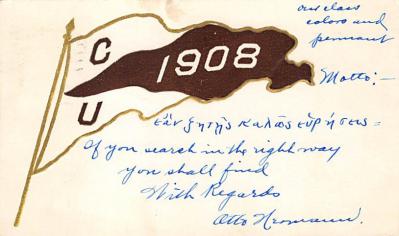 our class
colors and
pennant
C
U
1908
Motto:—
ἐὰν ζητῇς καλῶς εὑρήσεις =
If you search in the right way
you shall find
With Regards
Otto